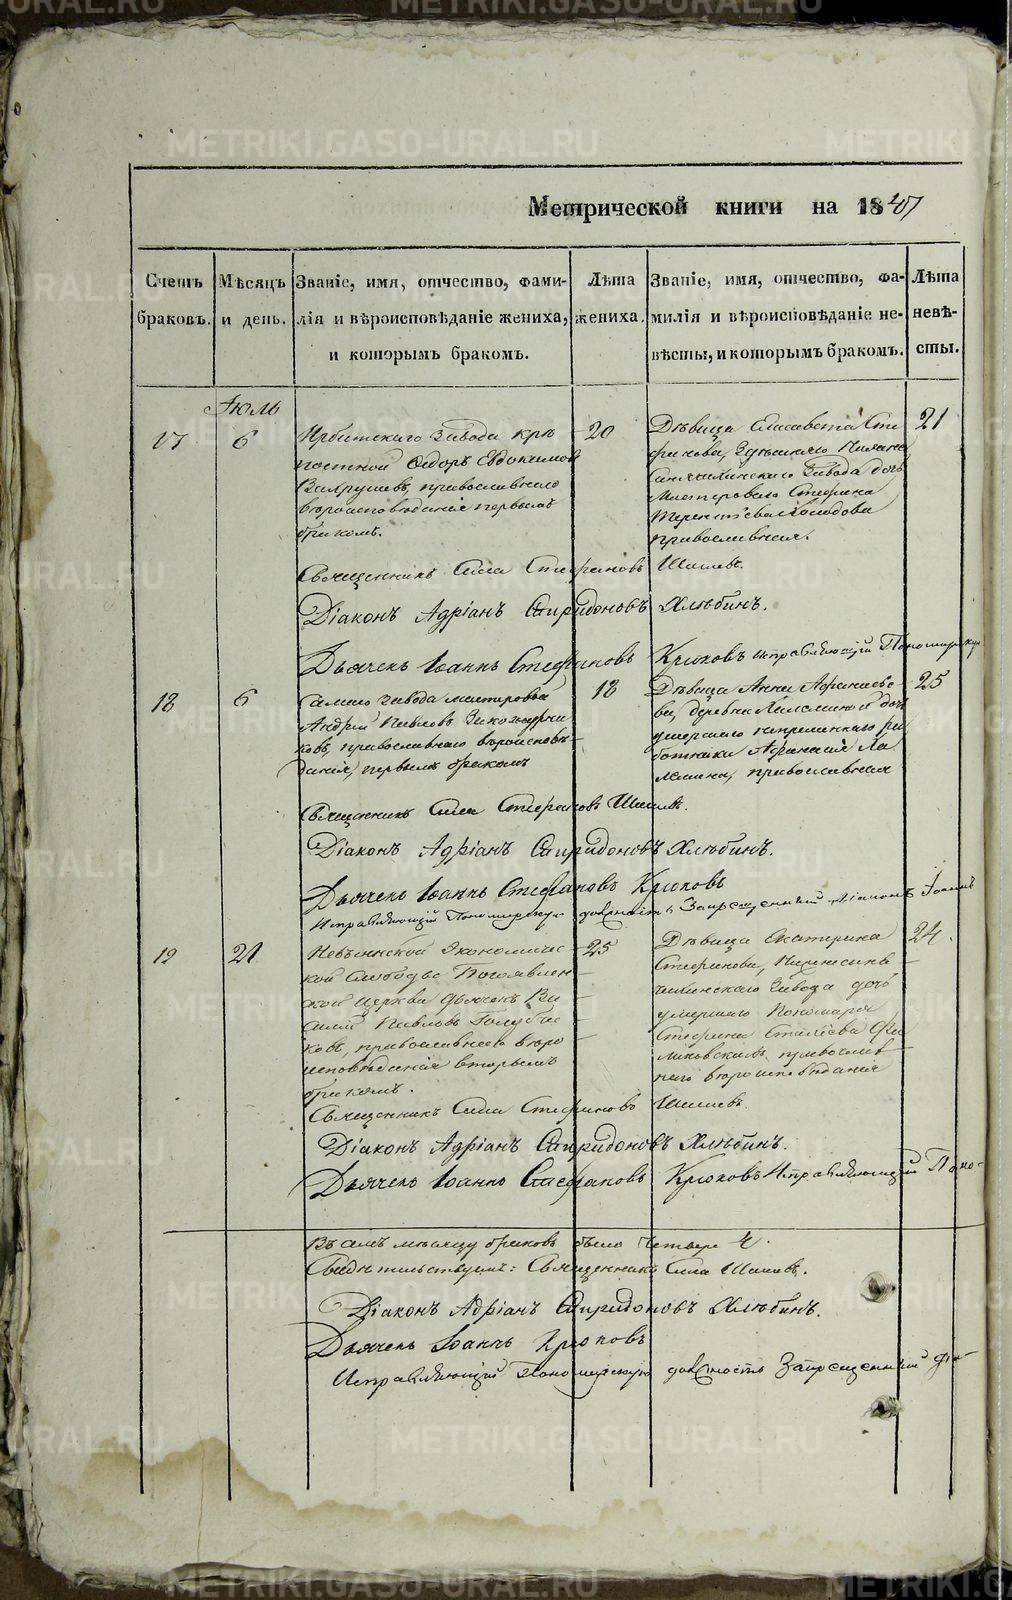 Метрической книги на 1847
Счетъ браковъ.
Мѣсяцъ и день.
Званіе, имя, отчество, фамилія и вѣроисповѣданіе жениха, и которымъ бракомъ.
Лѣта жениха.
Званіе, имя, отчество, фамилія и вѣроисповѣданіе невѣсты, и которымъ бракомъ.
Лѣта невѣсты.
Іюль
17
6
Ирбитскаго завода крѣ
постной Ѳедоръ Евдокимовъ
Вахрушевъ, православнаго
вѣроисповѣданія первымъ
бракомъ.
20
Дѣвица Елисавета Сте
фанова, здѣшняго Нижне
завода дочь
мастероваго Стефана
Терентьева Холодова
православная.
21
Священникъ Сила Стефановъ Шишевъ.
Діаконъ Адріанъ Спиридоновъ Хлѣбинъ.
Дьячекъ Іоаннъ Стефановъ Крюковъ исправляющій Пономарску
18
6
завода мастеровой
Андрей Павловъ
ковъ, православнаго вѣроисповѣ
данія, первымъ бракомъ
18
Дѣвица Анна Афанасье
ва, деревни дочь
умершаго непремѣннаго ра
ботника Афанасія Ла
православная
25
Священникъ Сила Стефановъ Шишевъ.
Діаконъ Адріанъ Спиридоновъ Хлѣбинъ.
Дьячекъ Іоаннъ Стефановъ Крюковъ
Исправляющій Пономарскую должность Запрещенный Діаконъ Іоаннъ
19
21
Невьянской Экономичес
кой Слободы Богоявлен
ской церкви дьячекъ Ва
силій Павловъ
ковъ, православнаго вѣро
исповѣданія вторымъ
бракомъ.
25
Дѣвица Екатерина
Стефанова,
завода дочь
умершаго Пономаря
Стефана
православ
наго вѣроисповѣданія
24.
Священникъ Сила Стефановъ Шишевъ.
Діаконъ Адріанъ Спиридоновъ Хлѣбинъ.
Дьячекъ Іоаннъ Стефановъ Крюковъ Исправляющій Поно-
Въ семъ мѣсяцѣ браковъ было четыре 4.
Свидѣтельствуемъ: Священникъ Сила Шишевъ.
Діаконъ Адріанъ Спиридоновъ Хлѣбинъ.
Дьячекъ Іоаннъ Крюковъ
Исправляющій Пономарскую должность Запрещенный Діа-
METRIKI.GASO-URAL.RU